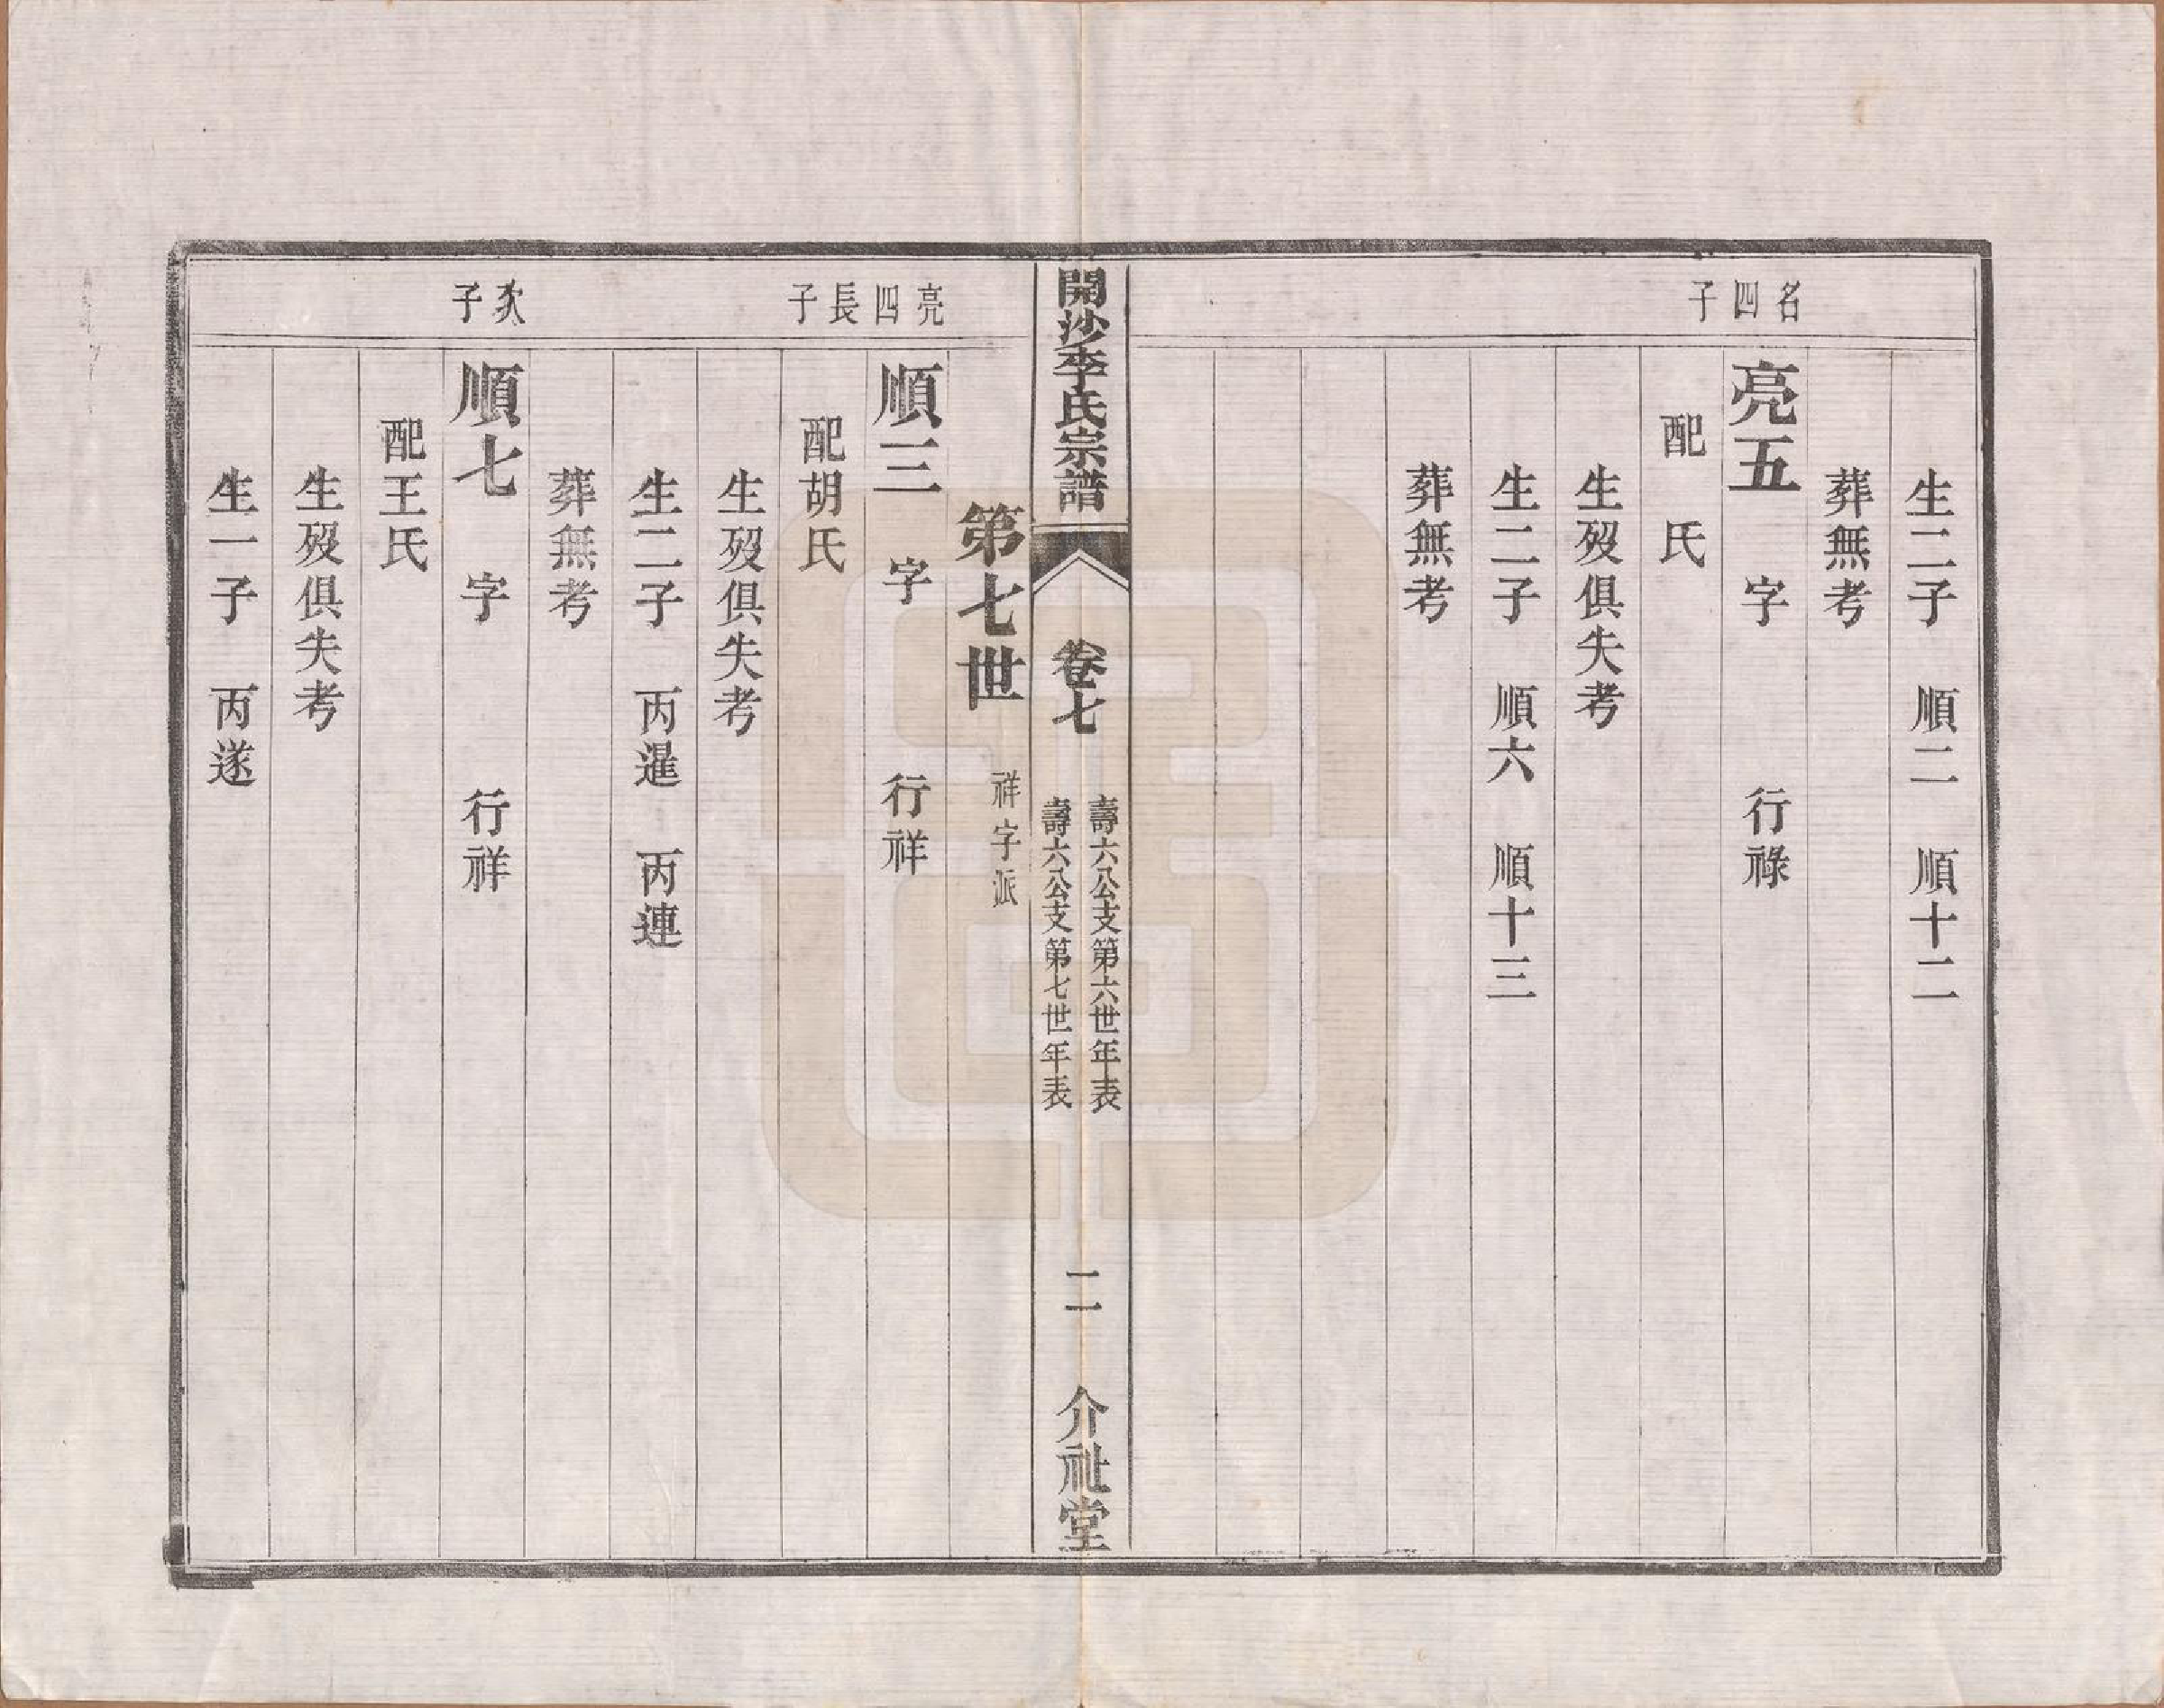 生二子　順二　順十二
葬無考
名四子
亮五　字　行祿
配　氏
生歿俱失考
生二子　順六　順十三
葬無考
開沙李氏宗譜　卷七
壽六公支第六世年表
壽六公支第七世年表
二　介祉堂
第七世　祥字派
亮四長子
順三　字　行祥
配胡氏
生歿俱失考
生二子　丙暹　丙連
葬無考
次子
順七　字　行祥
配王氏
生歿俱失考
生一子　丙遂